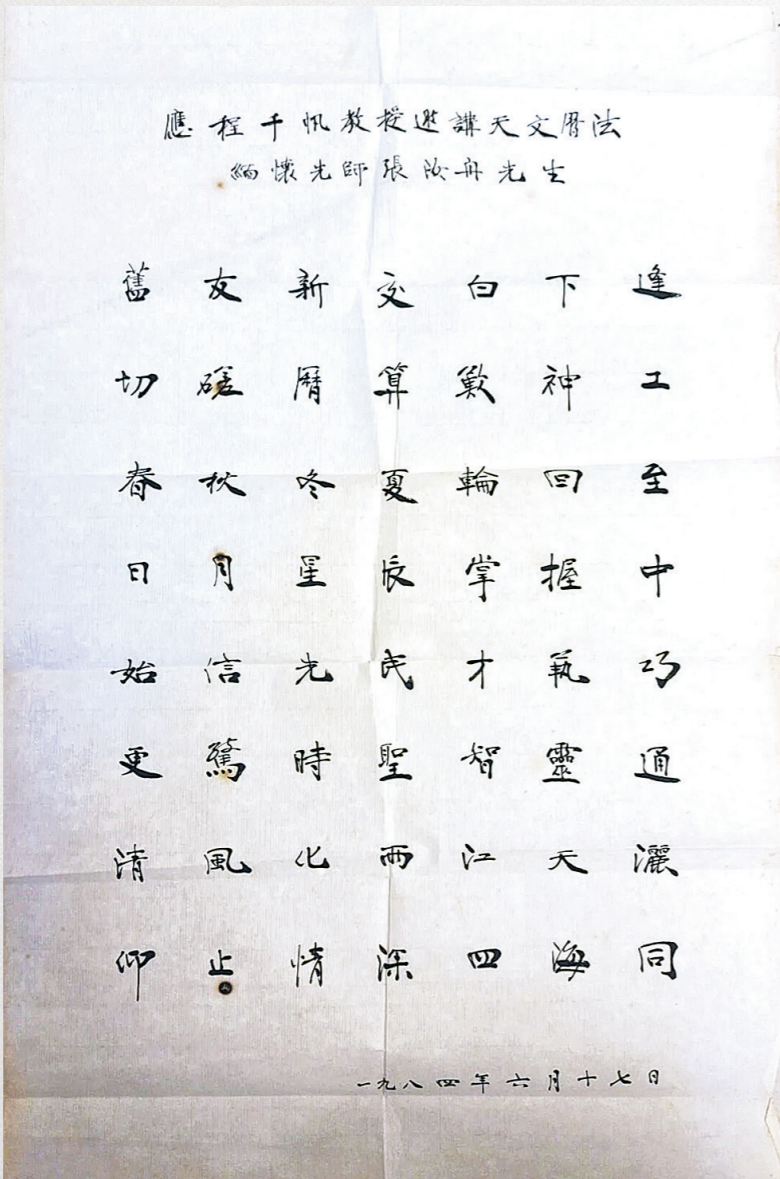 應程千帆教授邀講天文曆法
緬懷先師張汝舟先生
舊友新交白下逢
切磋曆算歎神工
春秋冬夏輪回至
日月星辰掌握中
始信先民才埶巧
更驚時聖智靈通
清風化雨江天灑
仰止情深四海同
一九八四年六月十七日